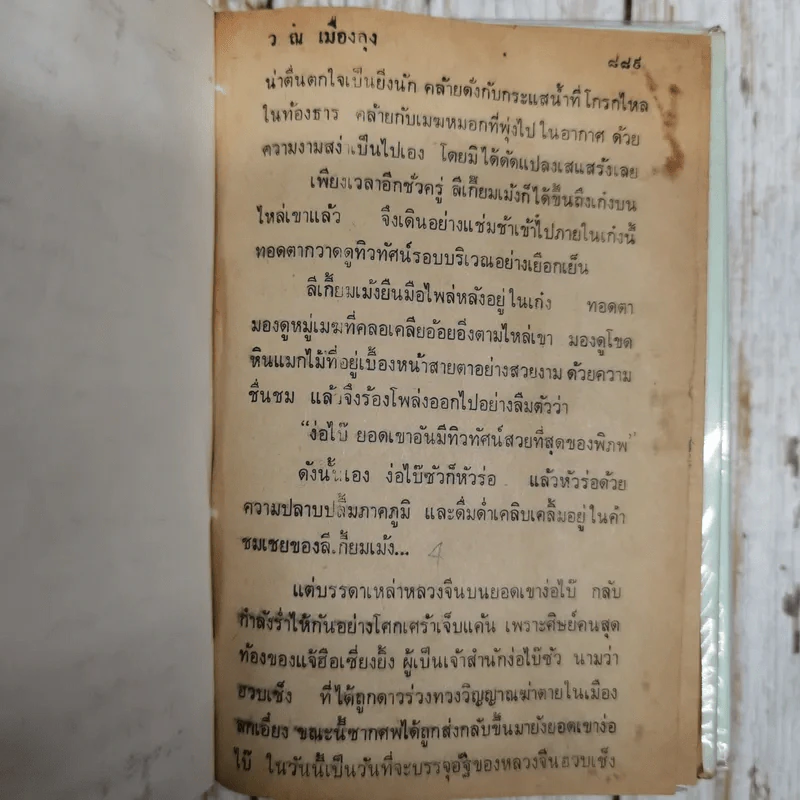 ว ณ เมืองลุง
๘๘๙
น่าตื่นตกใจเป็นยิ่งนัก คล้ายดั่งกับกระแสน้ำที่โกรกไหล
ในท้องธาร คล้ายกับเมฆหมอกที่พุ่งไปในอากาศ ด้วย
ความงามสง่าเป็นไปเอง โดยมิได้ดัดแปลงเสแสร้งเลย
เพียงเวลาอีกชั่วครู่ ลีเกี้ยมเม้งก็ได้ขึ้นถึงเก๋งบน
ไหล่เขาแล้ว จึงเดินอย่างแช่มช้าเข้าไปภายในเก๋งนี้
ทอดตากวาดดูทิวทัศน์รอบบริเวณอย่างเยือกเย็น
ลีเกี้ยมเม้งยืนมือไพล่หลังอยู่ในเก๋ง ทอดตา
มองดูหมู่เมฆที่คลอเคลียอ้อยอิ่งตามไหล่เขา มองดูโขด
หินแมกไม้ที่อยู่เบื้องหน้าสายตาอย่างสวยงาม ด้วยความ
ชื่นชม แล้วจึงร้องโพล่งออกไปอย่างลืมตัวว่า
“ง่อไบ๊ ยอดเขาอันมีทิวทัศน์สวยที่สุดของพิภพ”
ดังนั้นเอง ง่อไบ๊ซัวก็หัวร่อ แล้วหัวร่อด้วย
ความปลาบปลื้มภาคภูมิ และดื่มด่ำเคลิบเคลิ้มอยู่ในคำ
ชมเชยของลีเกี้ยมเม้ง... 4
แต่บรรดาเหล่าหลวงจีนบนยอดเขาง่อไบ๊ กลับ
กำลังร่ำไห้กันอย่างโศกเศร้าเจ็บแค้น เพราะศิษย์คนสุด
ท้องของแจ้ฮือเซี่ยงยิ้ง ผู้เป็นเจ้าสำนักง่อไบ๊ซัว นามว่า
ฮวบเช็ง ที่ได้ถูกดาวร่วงทวงวิญญาณฆ่าตายในเมือง
ลกเอี๋ยง ขณะนี้ซากศพได้ถูกส่งกลับขึ้นมายังยอดเขาง่อ
ไบ๊ ในวันนี้เป็นวันที่จะบรรจุอัฐิของหลวงจีนฮวบเช็ง